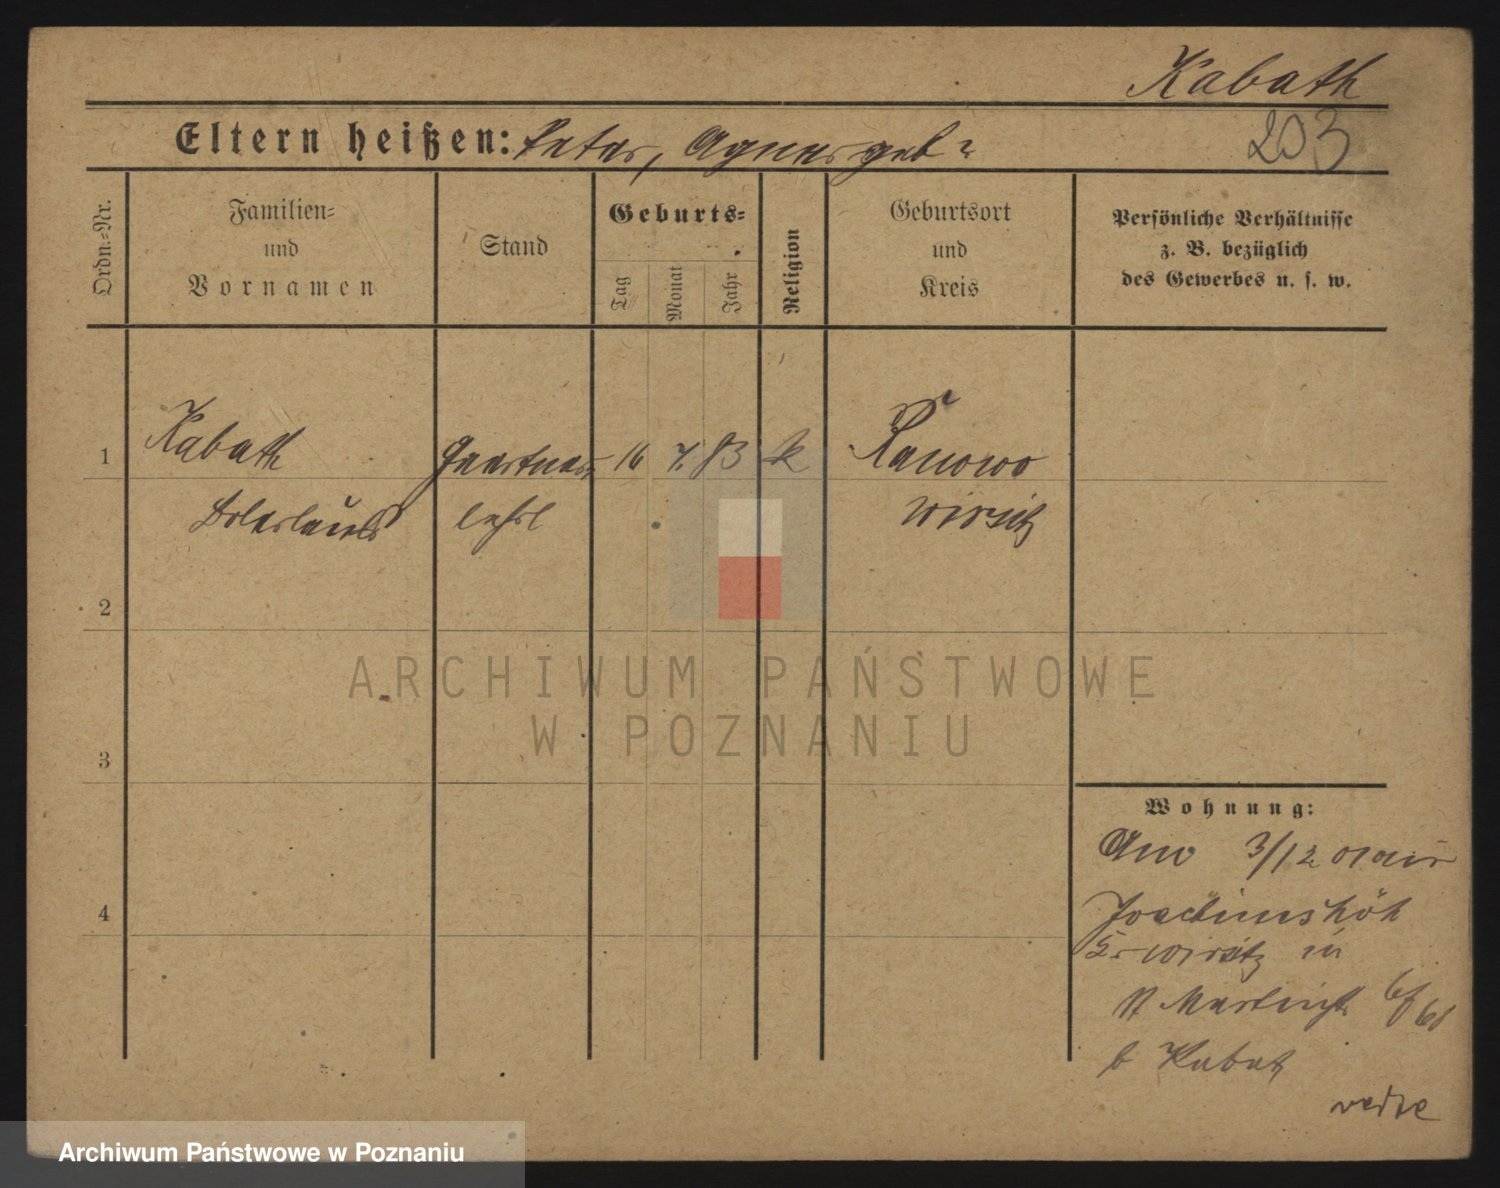 Kabath
203
Eltern heißen: Peter, Agnes geb ?
Ordn.-Nr.
Familien-
und
Vornamen
Stand
Geburts-
Tag
Monat
Jahr
Religion
Geburtsort
und
Kreis
Persönliche Verhältnisse
z. B. bezüglich
des Gewerbes u. s. w.
1
Kabath
Boleslaus
Gaertner-
lehrl
16 7. 83
k
Ranowo
Wirsitz
2
3
4
Wohnung:
3/12
Wirsitz in
St Martinstr 67/68
b Kabat
verte
ARCHIWUM PAŃSTWOWE
W POZNANIU
Archiwum Państwowe w Poznaniu